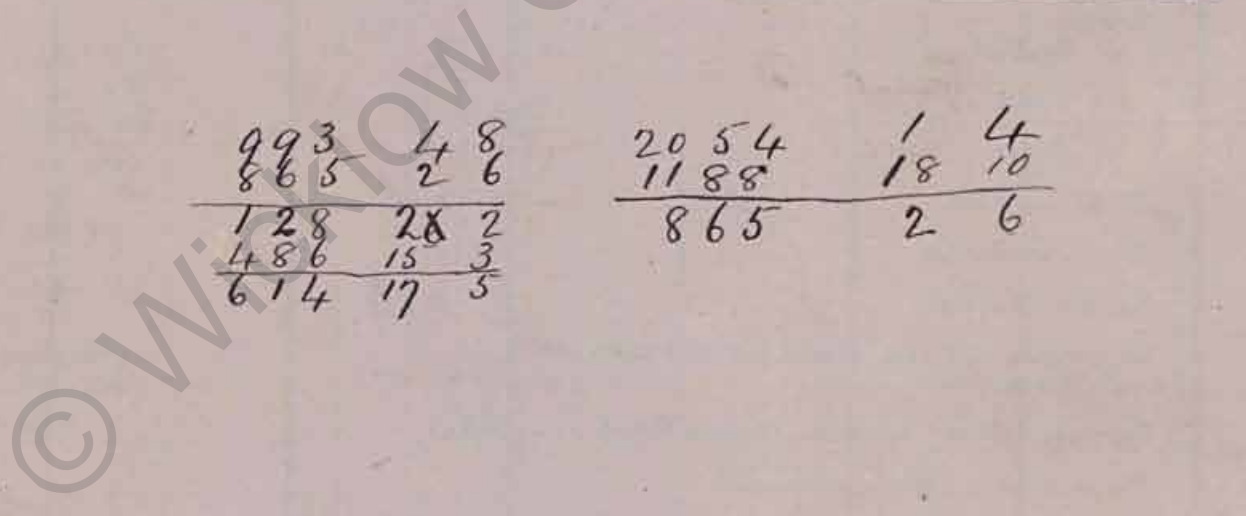 993 4 8
865 2 6
128 2 2
486 15 3
614 17 5
2054 1 4
1188 18 10
865 2 6
© Wicklow C